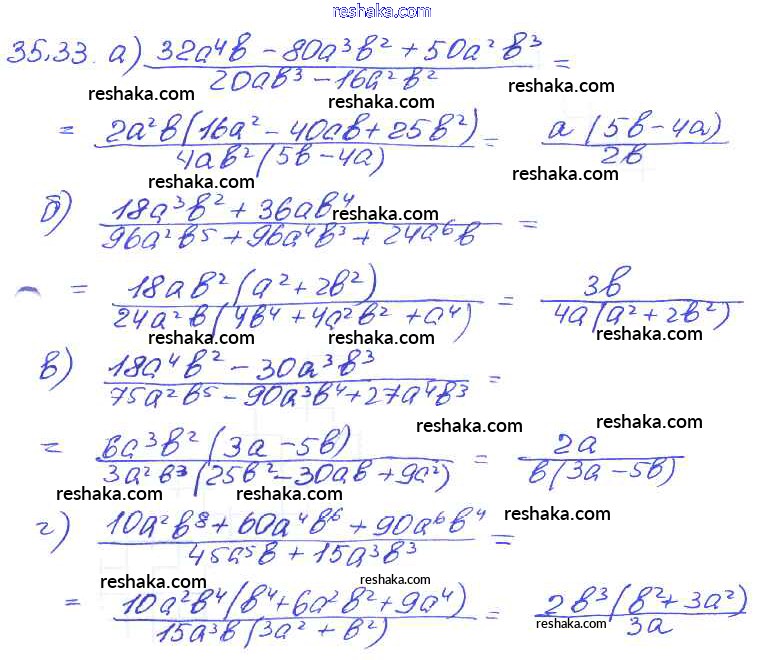 reshaka.com
35.33. а) (32a⁴b − 80a³b² + 50a²b³)/(20ab³ − 16a²b²) =
reshaka.com reshaka.com reshaka.com
= (2a²b(16a² − 40ab + 25b²))/(4ab²(5b − 4a)) = (a(5b − 4a))/(2b)
reshaka.com reshaka.com
б) (18a³b² + 36ab⁴)/(96a²b⁵ + 96a⁴b³ + 24a⁶b) =
reshaka.com
= (18ab²(a² + 2b²))/(24a²b(4b⁴ + 4a²b² + a⁴)) = (3b)/(4a(a² + 2b²))
reshaka.com reshaka.com reshaka.com
в) (18a⁴b² − 30a³b³)/(75a²b⁵ − 90a³b⁴ + 27a⁴b³) =
reshaka.com reshaka.com
= (6a³b²(3a − 5b))/(3a²b³(25b² − 30ab + 9a²)) = (2a)/(b(3a − 5b))
reshaka.com reshaka.com reshaka.com
г) (10a²b⁸ + 60a⁴b⁶ + 90a⁶b⁴)/(45a⁵b + 15a³b³) =
reshaka.com reshaka.com
= (10a²b⁴(b⁴ + 6a²b² + 9a⁴))/(15a³b(3a² + b²)) = (2b³(b² + 3a²))/(3a)
reshaka.com reshaka.com